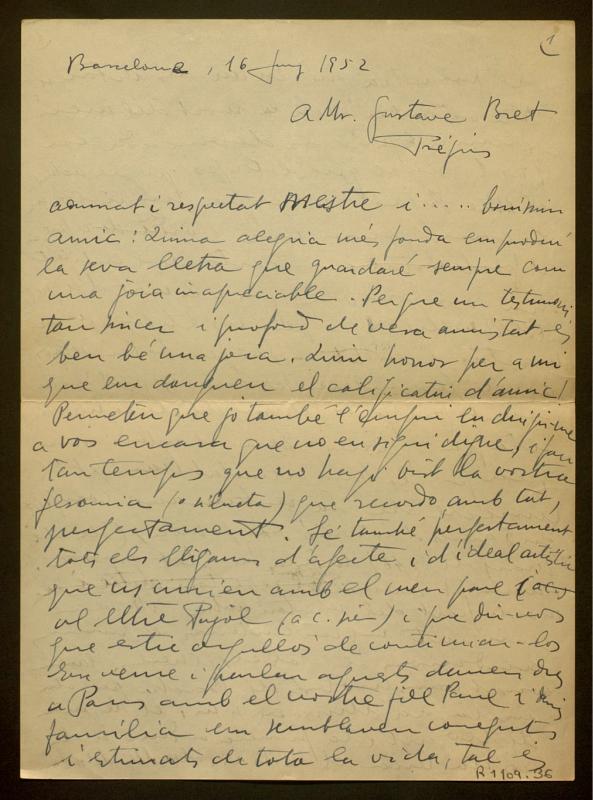 1
Barcelona, 16 Juny 1952
A Mr. Gustave Bret
Fréjus
admirat i respectat Mestre i ..... boníssim
amic: Quina alegria més fonda em produí
la seva lletra que guardaré sempre com
una joia inapreciable. Perque un testimoni
tan sincer i profond de vera amistat és
ben bé una joia. Quin honor per a mi
que em donguen el calificatiu d'amic!
Permeteu que jo també l'empri en dirigir-me
a vos encara que no en sigui digne, i fan
tan temps que no hagi vist la vostra
fesomia (o silueta) que recordo amb tot,
perfectament. Sé també perfectament
tots els lligams d'afecte i d'ideal artístic
que us unien amb el meu pare
al Mtre Pujol (a c. s.) i puc dir-vos
que estic orgullós de continuar-los
En veure i parlar aquests darrers dies
a Paris amb el vostre fill Paul i
família em semblaven coneguts
i estimats de tota la vida, tal és
R 1109.36